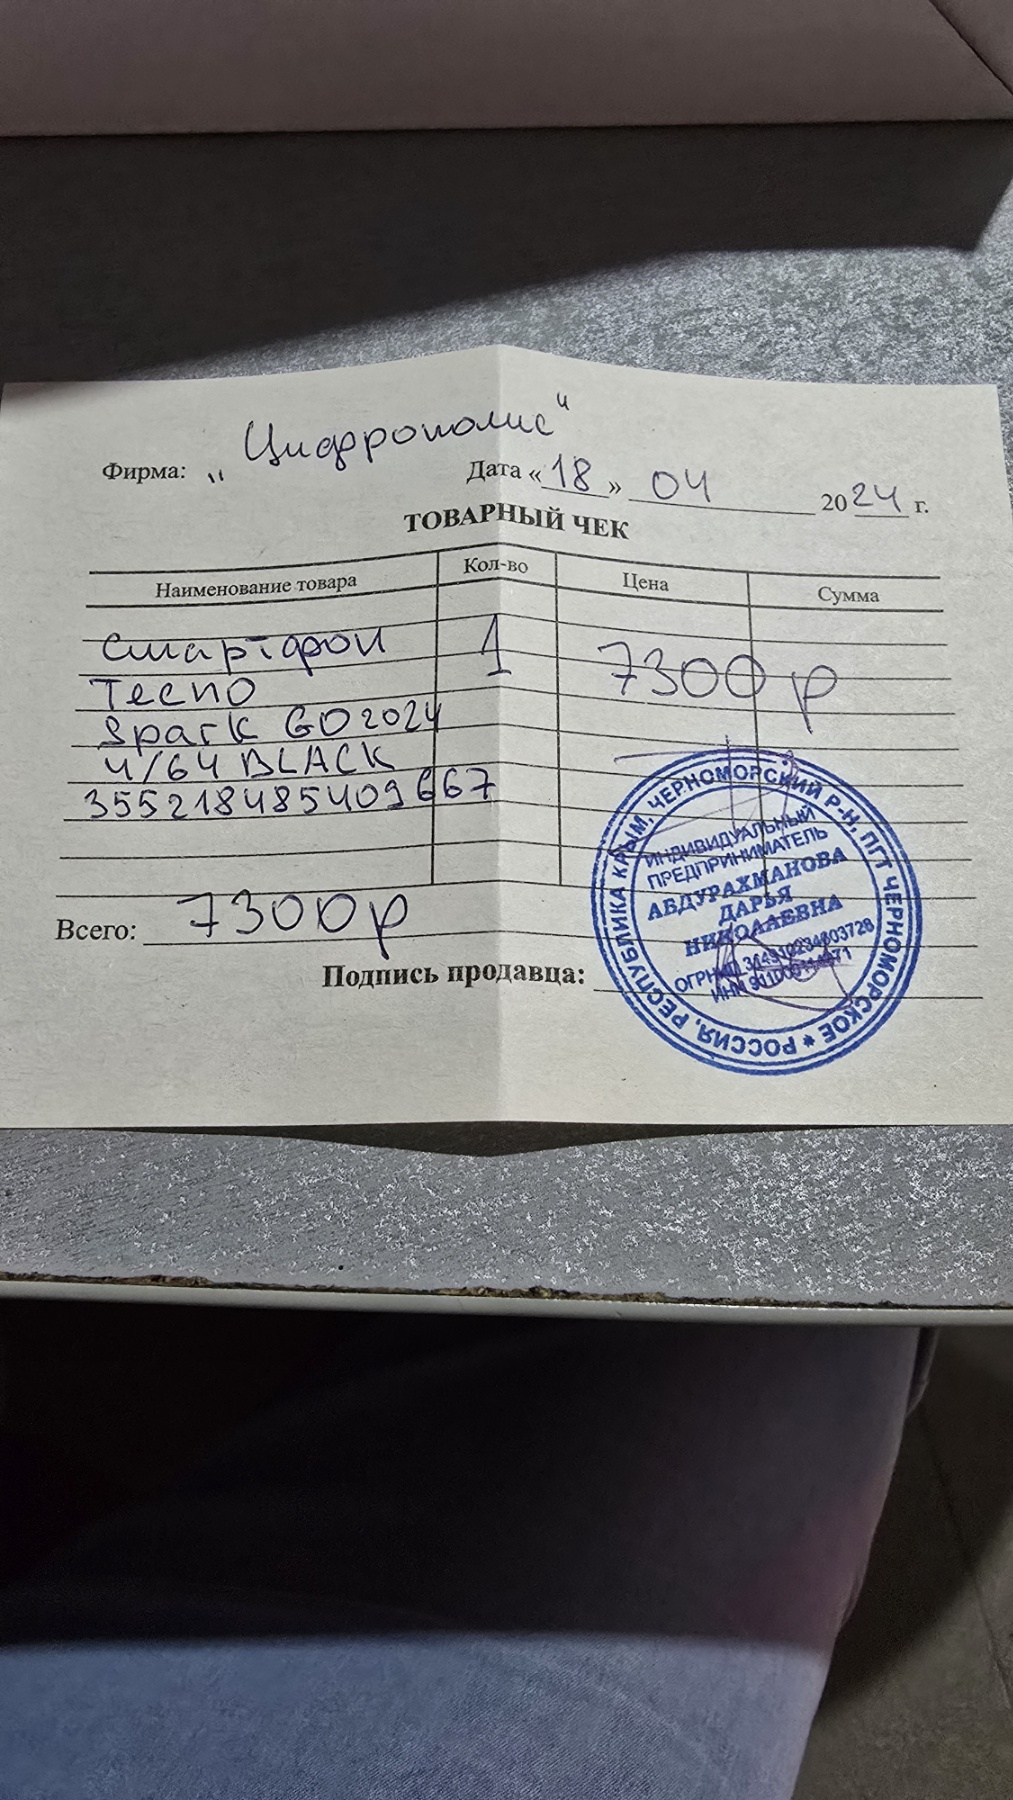 Фирма: „Цифрополис" Дата «18» 04 2024 г.
ТОВАРНЫЙ ЧЕК
Наименование товара Кол-во Цена Сумма
Смартфон 1 7300р
Tecno
Spark GO 2024
4/64 BLACK
355218485409667
Всего: 7300р
Подпись продавца:
РОССИЯ, РЕСПУБЛИКА КРЫМ, ЧЕРНОМОРСКИЙ Р-Н, ПГТ ЧЕРНОМОРСКОЕ *
ИНДИВИДУАЛЬНЫЙ
ПРЕДПРИНИМАТЕЛЬ
АБДУРАХМАНОВА
ДАРЬЯ
НИКОЛАЕВНА
ОГРНИП
ИНН